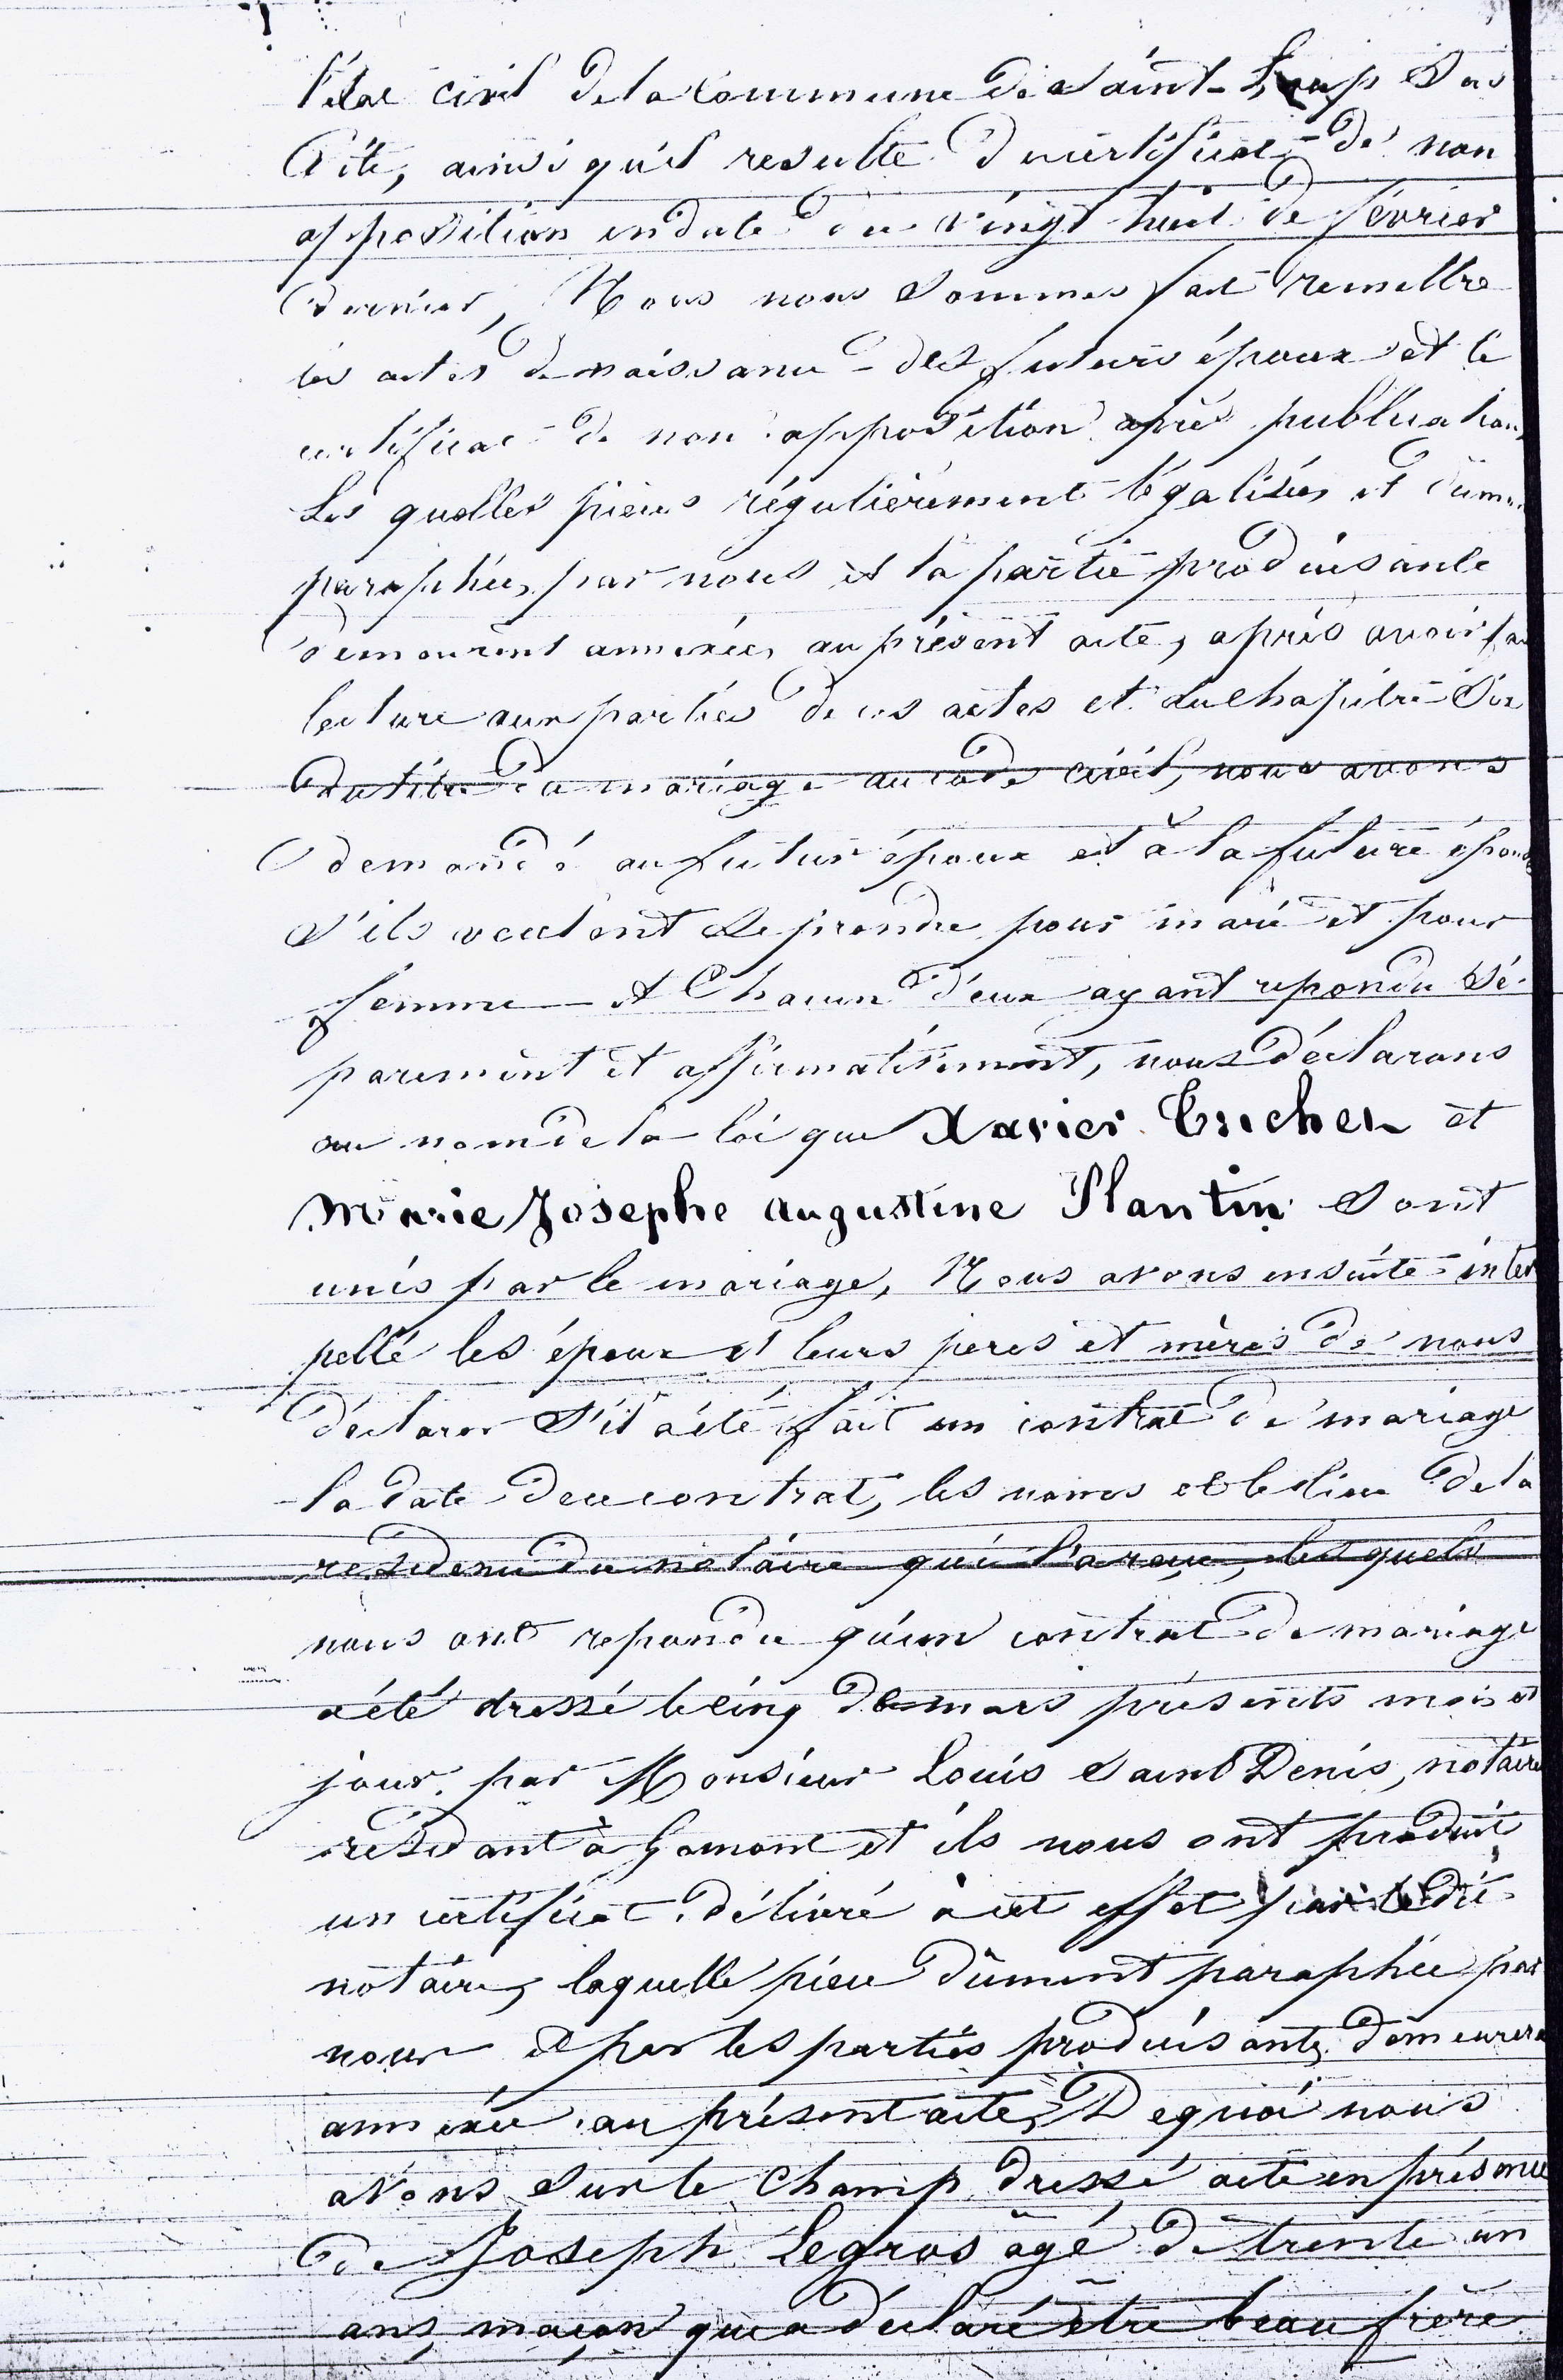 l'état civil de la commune de Saint-Loup dos
dite, ainsi qu'il resulte du certificat de non
opposition en date du vingt huit de février
dernier, Nous nous sommes fait remettre
les actes de naissance des futurs époux et le
certificat de non opposition après publication,
Les quelles pièces régulièrement légalisées et dûment
paraphées par nous et la partie produisante
demeurent annexées au présent acte, après avoir fait
lecture aux parties de ces actes et du chapitre Six
du titre du mariage au code civil, nous avons
demandé au futur époux et à la future épouse
S'ils veulent se prendre pour mari et pour
femme et Chacun d'eux ayant repondu sé-
parement et affirmativement, nous déclarons
au nom de la loi que Xavier Truchet et
Marie Josephe Augustine Plantin sont
unis par le mariage, Nous avons ensuite inter
pellé les époux et leurs peres et mères de nous
déclarer S'il a été fait un contrat de mariage
la date de ce contrat, les noms et le lieu de la
residence du notaire qui l'a reçu, lesquels
nous ont repondu qu'un contrat de mariage
a été dressé le cinq de mars présents mois et
jour, par Monsieur Louis Saint Denis, notaire
résidant à et ils nous ont produit
un certificat délivré à cet effet par le dit
notaire, laquelle pièce dûment paraphée par
nous et par les parties produisantes demeurera
annexée au présent acte, De quoi nous
avons sur le champ dressé acte en présence
de Joseph Legros agé de trente un
ans, maçon qui a déclaré être beau frère